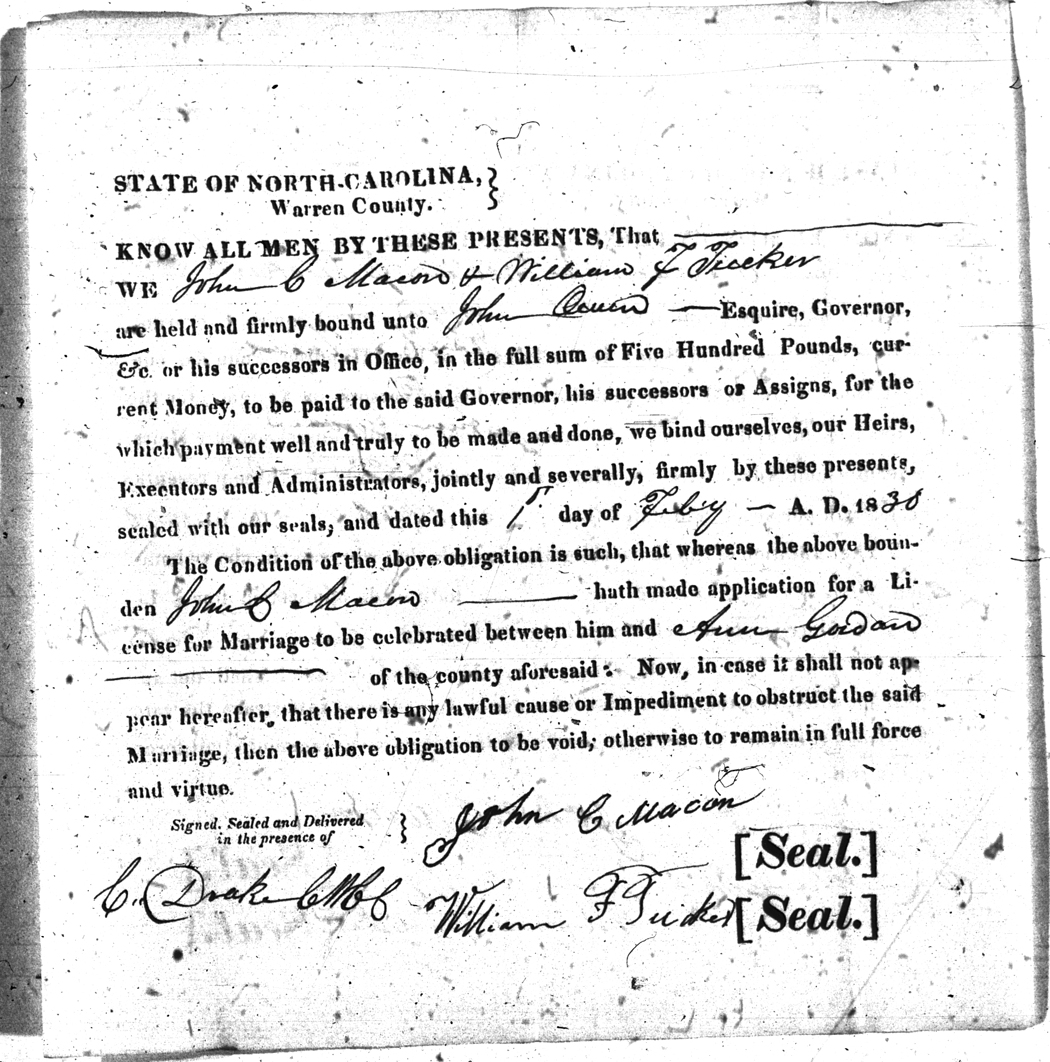 STATE OF NORTH-CAROLINA, }
Warren County.
KNOW ALL MEN BY THESE PRESENTS, That
WE John C Macon & William F Tucker
are held and firmly bound unto John Owen — Esquire, Governor,
&c. or his successors in Office, in the full sum of Five Hundred Pounds, cur-
rent Money, to be paid to the said Governor, his successors or Assigns, for the
which payment well and truly to be made and done, we bind ourselves, our Heirs,
Executors and Administrators, jointly and severally, firmly by these presents,
sealed with our seals, and dated this 1st day of Feby — A. D. 1830
The Condition of the above obligation is such, that whereas the above boun-
den John C Macon — hath made application for a Li-
cense for Marriage to be celebrated between him and Ann Gordan
of the county aforesaid: Now, in case it shall not ap-
pear hereafter, that there is any lawful cause or Impediment to obstruct the said
Marriage, then the above obligation to be void; otherwise to remain in full force
and virtue.
Signed, Sealed and Delivered }
in the presence of
John C Macon
[Seal.]
C. Drake CWCC
William F Tucker [Seal.]